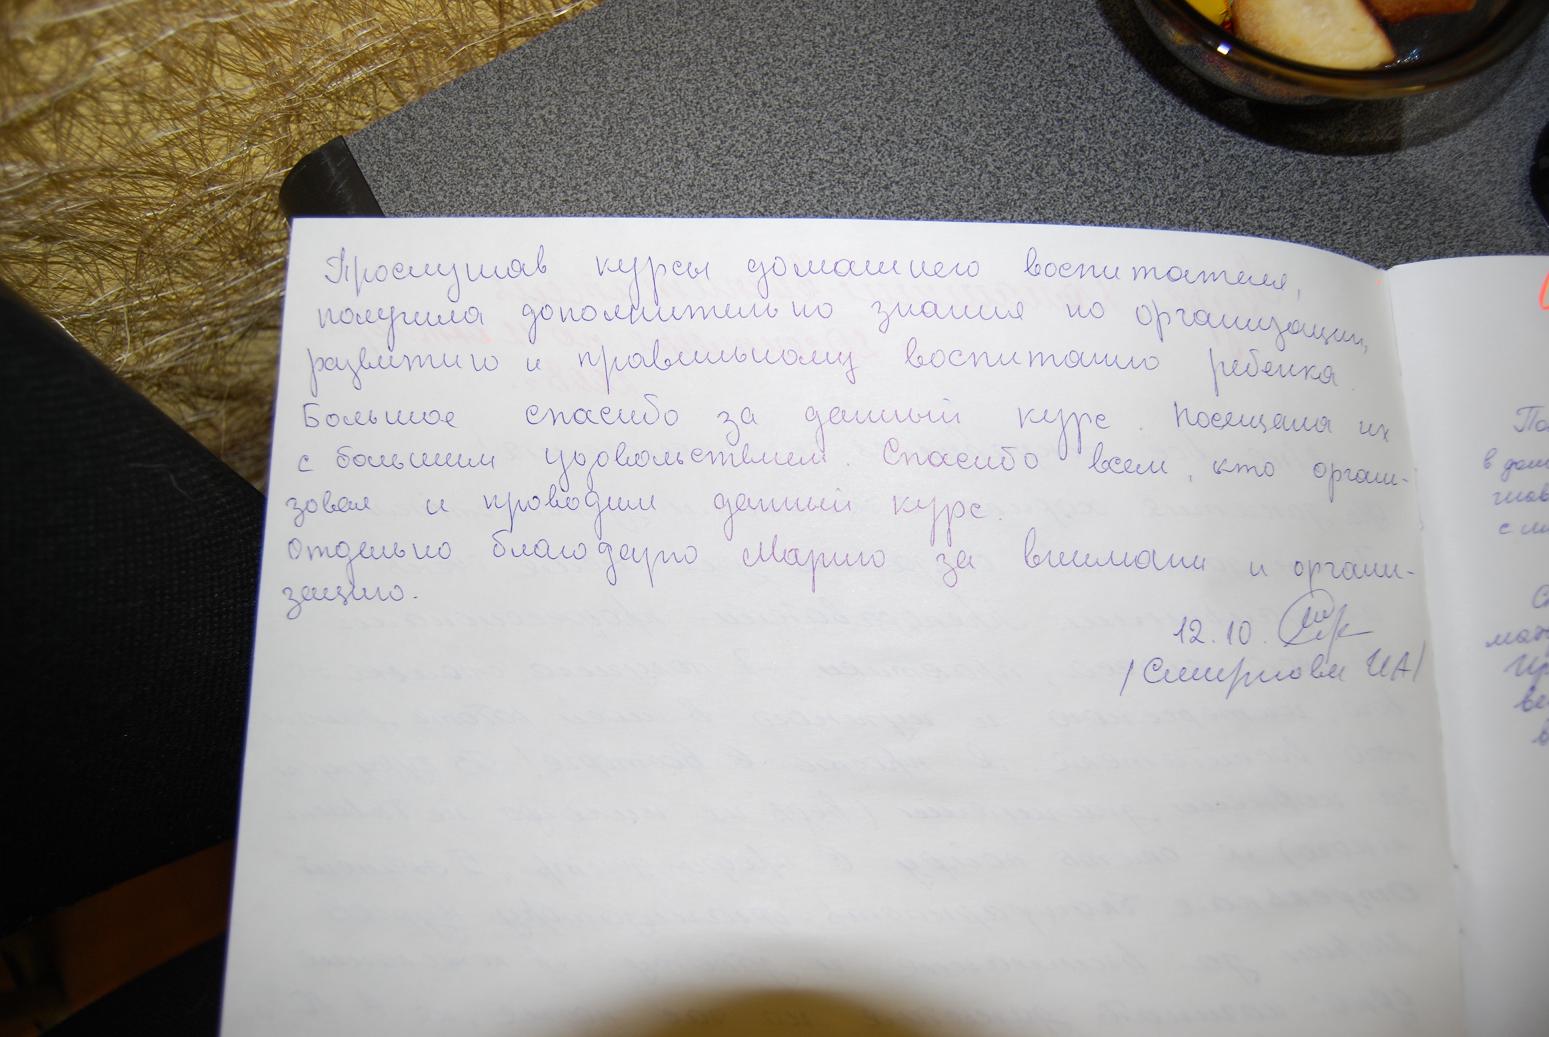 Прослушав курсы домашнего воспитателя,
получила дополнительно знания по организации,
развитию и правильному воспитанию ребенка.
Большое спасибо за данный курс. Посещала их
с большим удовольствием. Спасибо всем, кто органи-
зовал и проводил данный курс.
Отдельно благодарю Марию за внимание и органи-
зацию.
12.10.
/Смирнова И А/
в дом